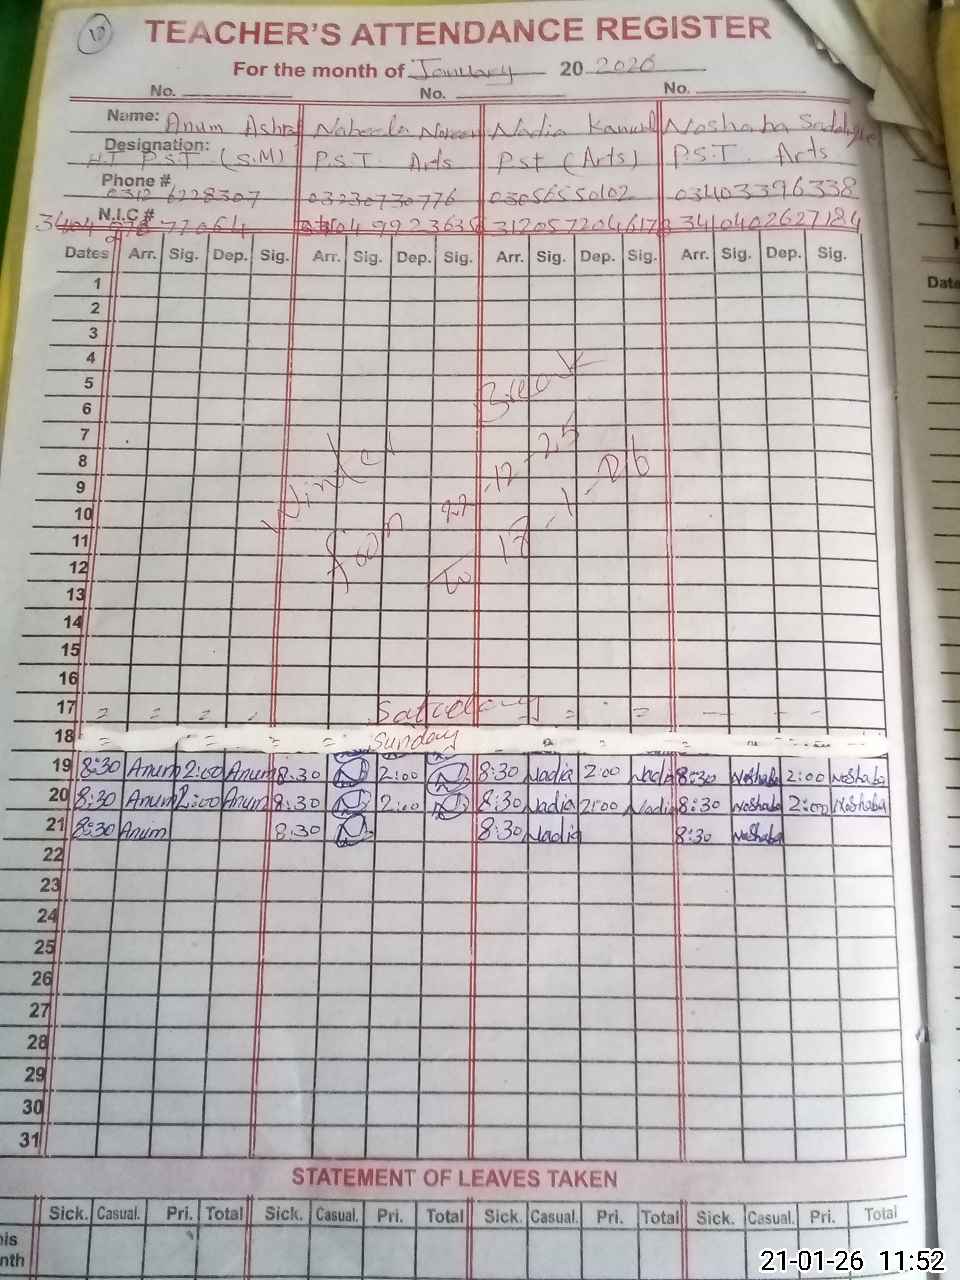 10
TEACHER'S ATTENDANCE REGISTER
For the month of January 20 2026
No. No. No.
Name: Anum Ashraf Nabeela Noreen Nadia Kanwal Noshaba
Designation: H.T P.S.T (S.M) P.S.T. Arts Pst (Arts) P.S.T. Arts
Phone # 0312 6228307 03230730776 03056550102 03403396338
N.I.C #
Dates Arr. Sig. Dep. Sig. Arr. Sig. Dep. Sig. Arr. Sig. Dep. Sig. Arr. Sig. Dep. Sig.
1
2
3
4
5
6
7
8
9
10
11
12
13
14
15
16
Winter Break
from -12-25
To 17-1-26
17 Saturday
18 Sunday
19 8:30 Anum 2:00 Anum 8:30 2:00 8:30 Nadia 2:00 Nadia 8:30 Noshaba 2:00 Noshaba
20 8:30 Anum 2:00 Anum 8:30 2:00 8:30 Nadia 2:00 Nadia 8:30 Noshaba 2:00 Noshaba
21 8:30 Anum 8:30 8:30 Nadia 8:30 Noshaba
22
23
24
25
26
27
28
29
30
31
STATEMENT OF LEAVES TAKEN
Sick. Casual. Pri. Total Sick. Casual. Pri. Total Sick. Casual. Pri. Total Sick. Casual. Pri. Total
21-01-26 11:52